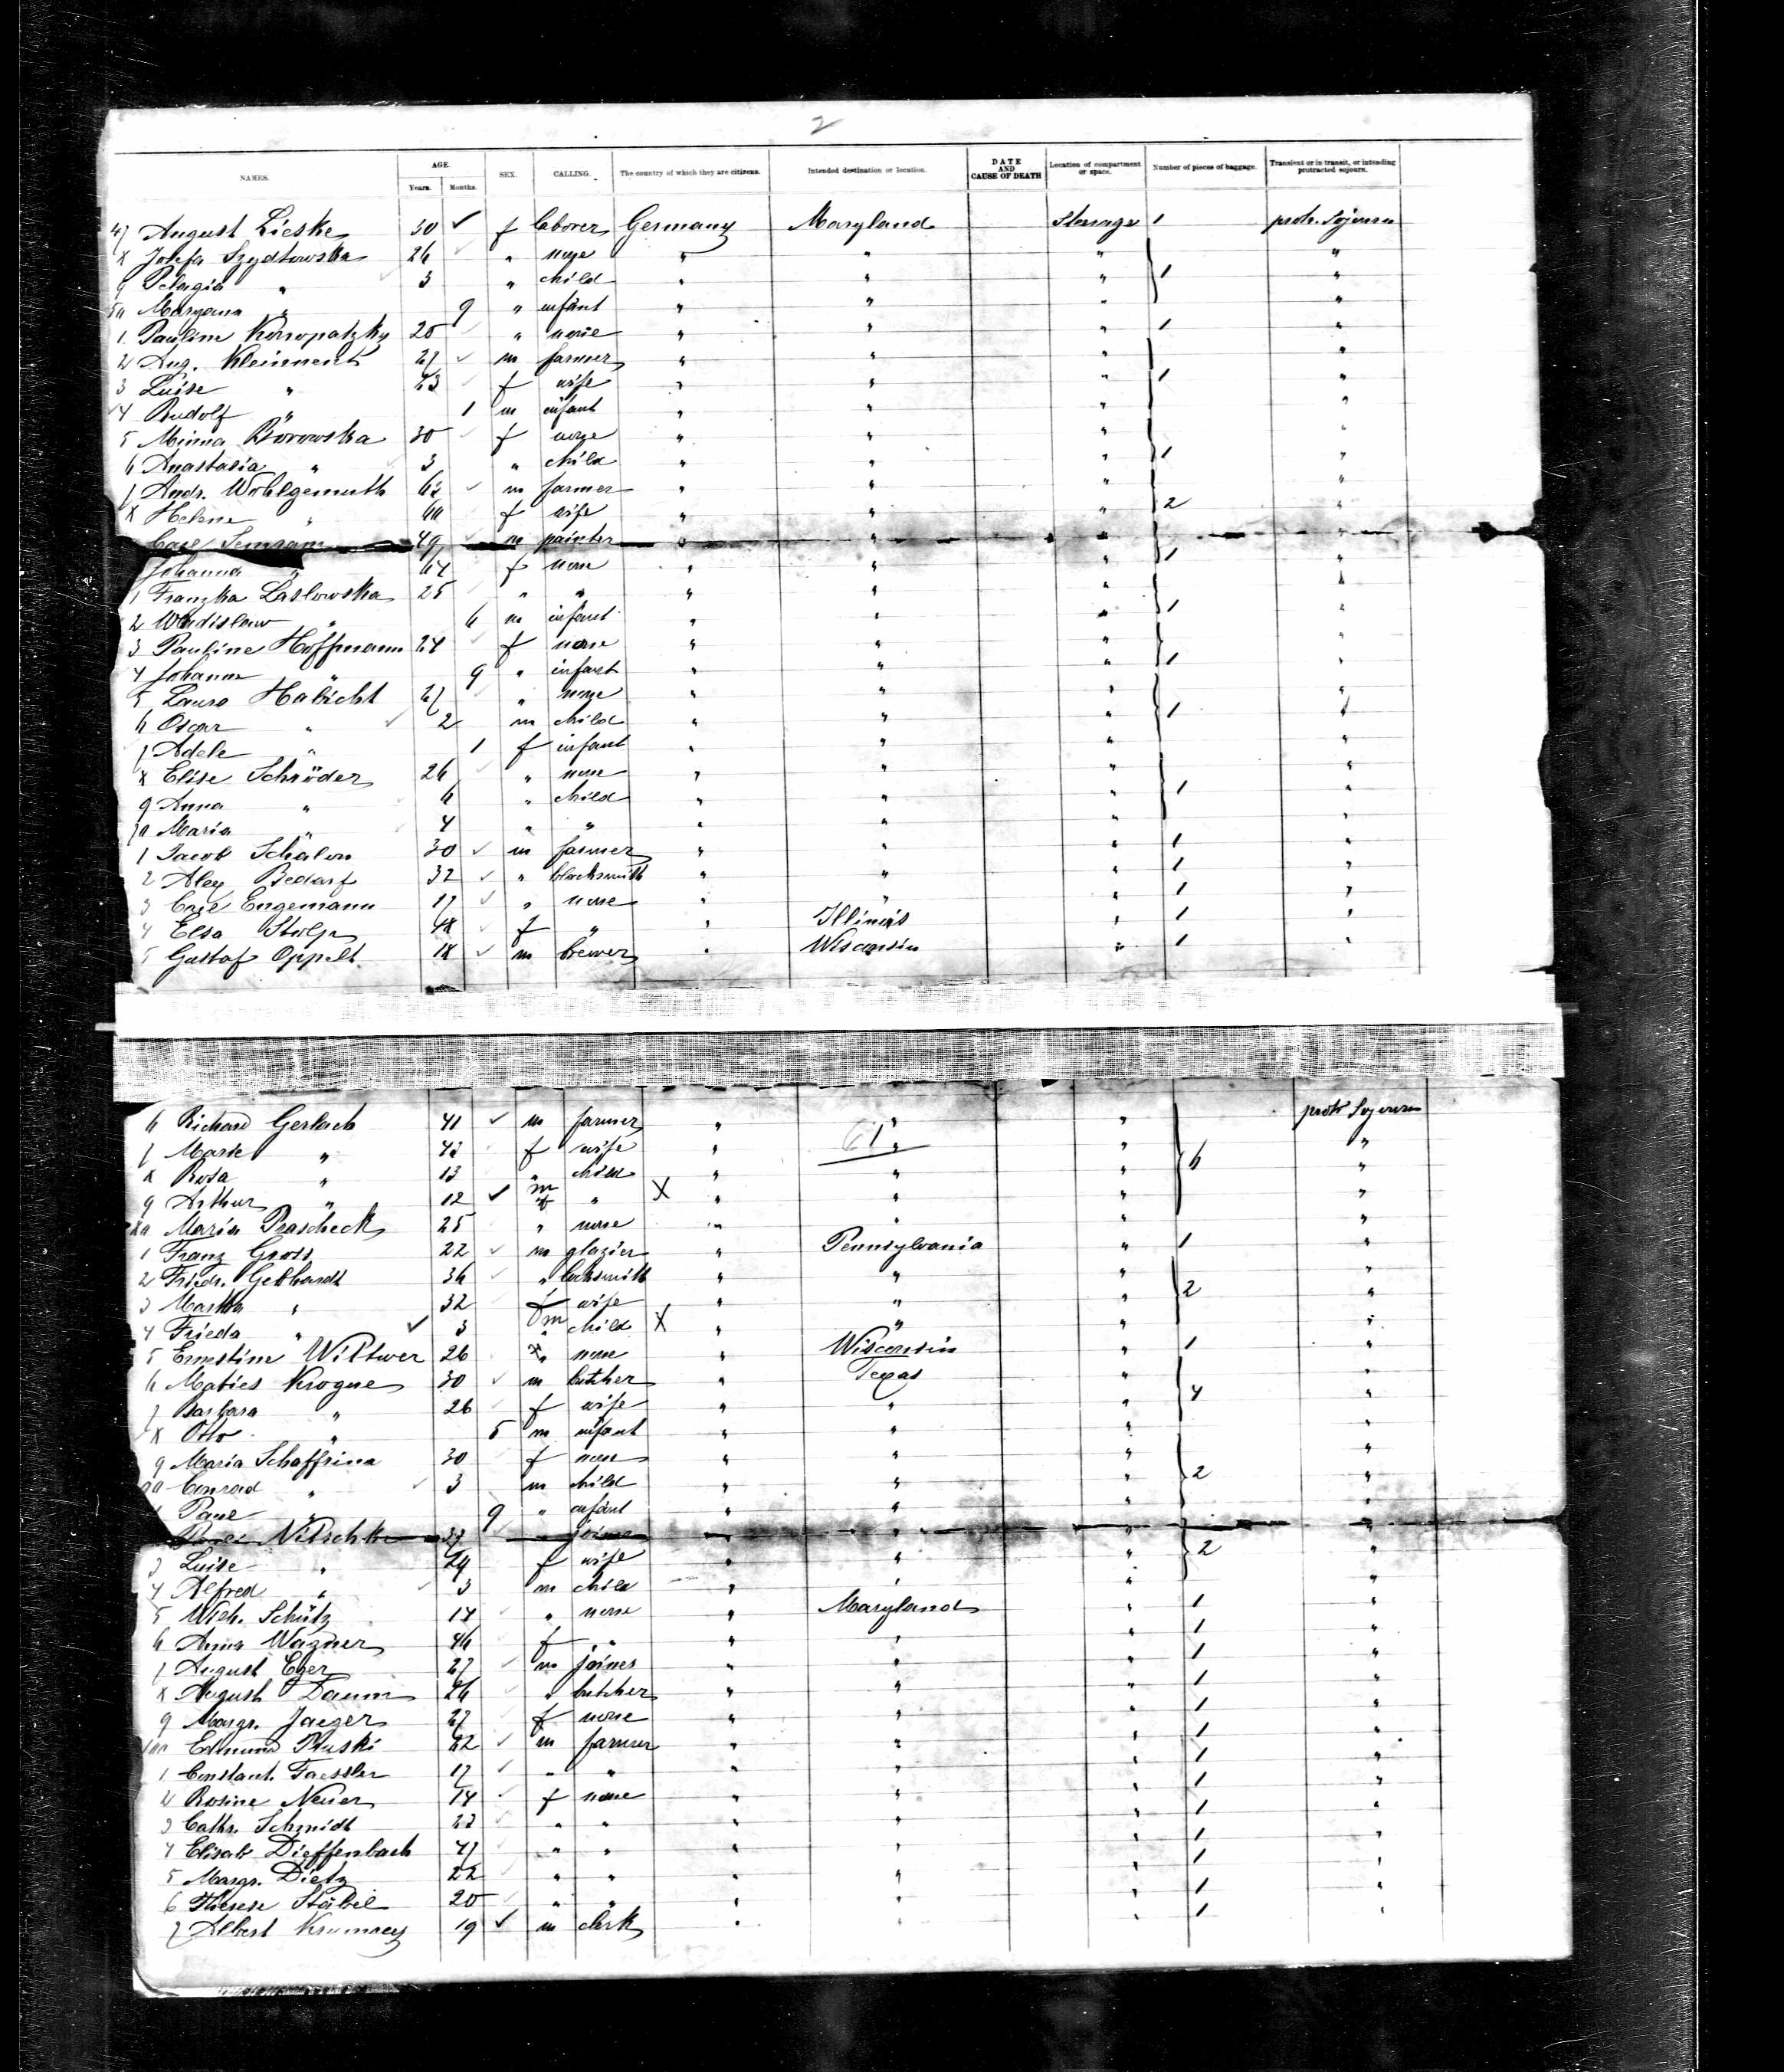 2
NAMES. AGE. Years. Months. SEX. CALLING. The country of which they are citizens. Intended destination or location. DATE AND CAUSE OF DEATH Location of compartment or space. Number of pieces of baggage. Transient or in transit, or intending protracted sojourn.
August Lieske 30 ✓ f laborer Germany Maryland Steerage 1 protr. Sojourn
Josefa Szydlowska 26 " none " " " "
9 Pelagia " 3 " child " " " 1 "
50 Maryanna " 9 " infant " " " "
1 Pauline Konopatzky 20 " none " " " 1 "
2 Aug. Kleinnent 27 ✓ m farmer " " " "
3 Luise " 23 f wife " " " 1 "
4 Rudolf " 1 m infant " " " "
5 Minna Borowska 30 f none " " " "
6 Anastasia " 3 " child " " " 1 "
7 Andr. Wohlgemuth 62 ✓ m farmer " " " "
8 Helene " f wife " " " 2 "
Carl 49 m painter " " " "
Johanna " 64 f none " " " 1 "
1 Franzka Laslowska 25 " " " " " "
2 Wladislaw " 6 m infant " " " 1 "
3 Pauline Hoffmann 24 f none " " " "
4 Johanna " 9 " infant " " " 1 "
5 Laura Habicht 27 " none " " " "
6 Oscar " 2 m child " " " 1 "
7 Adele " 1 f infant " " " "
8 Elise Schröder 26 " none " " " "
9 Anna " 6 " child " " " 1 "
70 Maria " 4 " " " " " "
1 Jacob Schalon 30 ✓ m farmer " " " 1 "
2 Alex Bedarf 32 ✓ " blacksmith " " " 1 "
3 Carl Engemann 17 ✓ " none " " " 1 "
4 Elsa Stolp 48 f " " Illinois " 1 "
5 Gustaf Oppelt 18 ✓ m brewer " Wisconsin " 1 "
6 Richard Gerlach 41 ✓ m farmer " " " protr Sojourn
7 Marie " 42 f wife " " " "
8 Rosa " 13 " child " " " 6 "
9 Arthur " 12 ✓ m " X " " " "
80 Maria Peascheck 25 " none " " " "
1 Franz Gross 22 ✓ m glazier " Pennsylvania " 1 "
2 Friedr. Gebhardt 36 " locksmith " " " "
3 Martha " 32 f wife " " " 2 "
4 Frieda " ✓ 3 m child X " " " "
5 Ernestine Wittwer 26 " none " Wisconsin " 1 "
6 Maties Krogue 30 ✓ m butcher " Texas " "
7 Barbara " 26 f wife " " " 4 "
8 Otto " 5 m infant " " " "
9 Maria Schaffrina 30 f none " " " "
90 Conrad " 3 m child " " " 2 "
Paul " 9 " infant " " " "
Nitschke 37 joiner " " " "
3 Luise " 29 f wife " " " 2 "
4 Alfred " 3 m child " " " "
5 Wilh. Schütz 14 " none " Maryland " 1 "
6 Anna Wagner 46 f " " " " 1 "
7 August Eger 27 m joiner " " " 1 "
8 August Daum 26 " butcher " " " 1 "
9 Margr. Jaeger 27 f none " " " 1 "
100 Edmund 22 ✓ m farmer " " " 1 "
1 Constant. Faessler 17 ✓ " " " " " 1 "
2 Rosine Neuer 14 f none " " " 1 "
3 Cathr. Schmidt 22 " " " " " 1 "
4 Elisab Dieffenbach 47 " " " " " 1 "
5 Margr. Dietz 22 " " " " " 1 "
6 Therese Stäbel 20 " " " " " 1 "
7 Albert 19 ✓ m clerk " " " 1 "